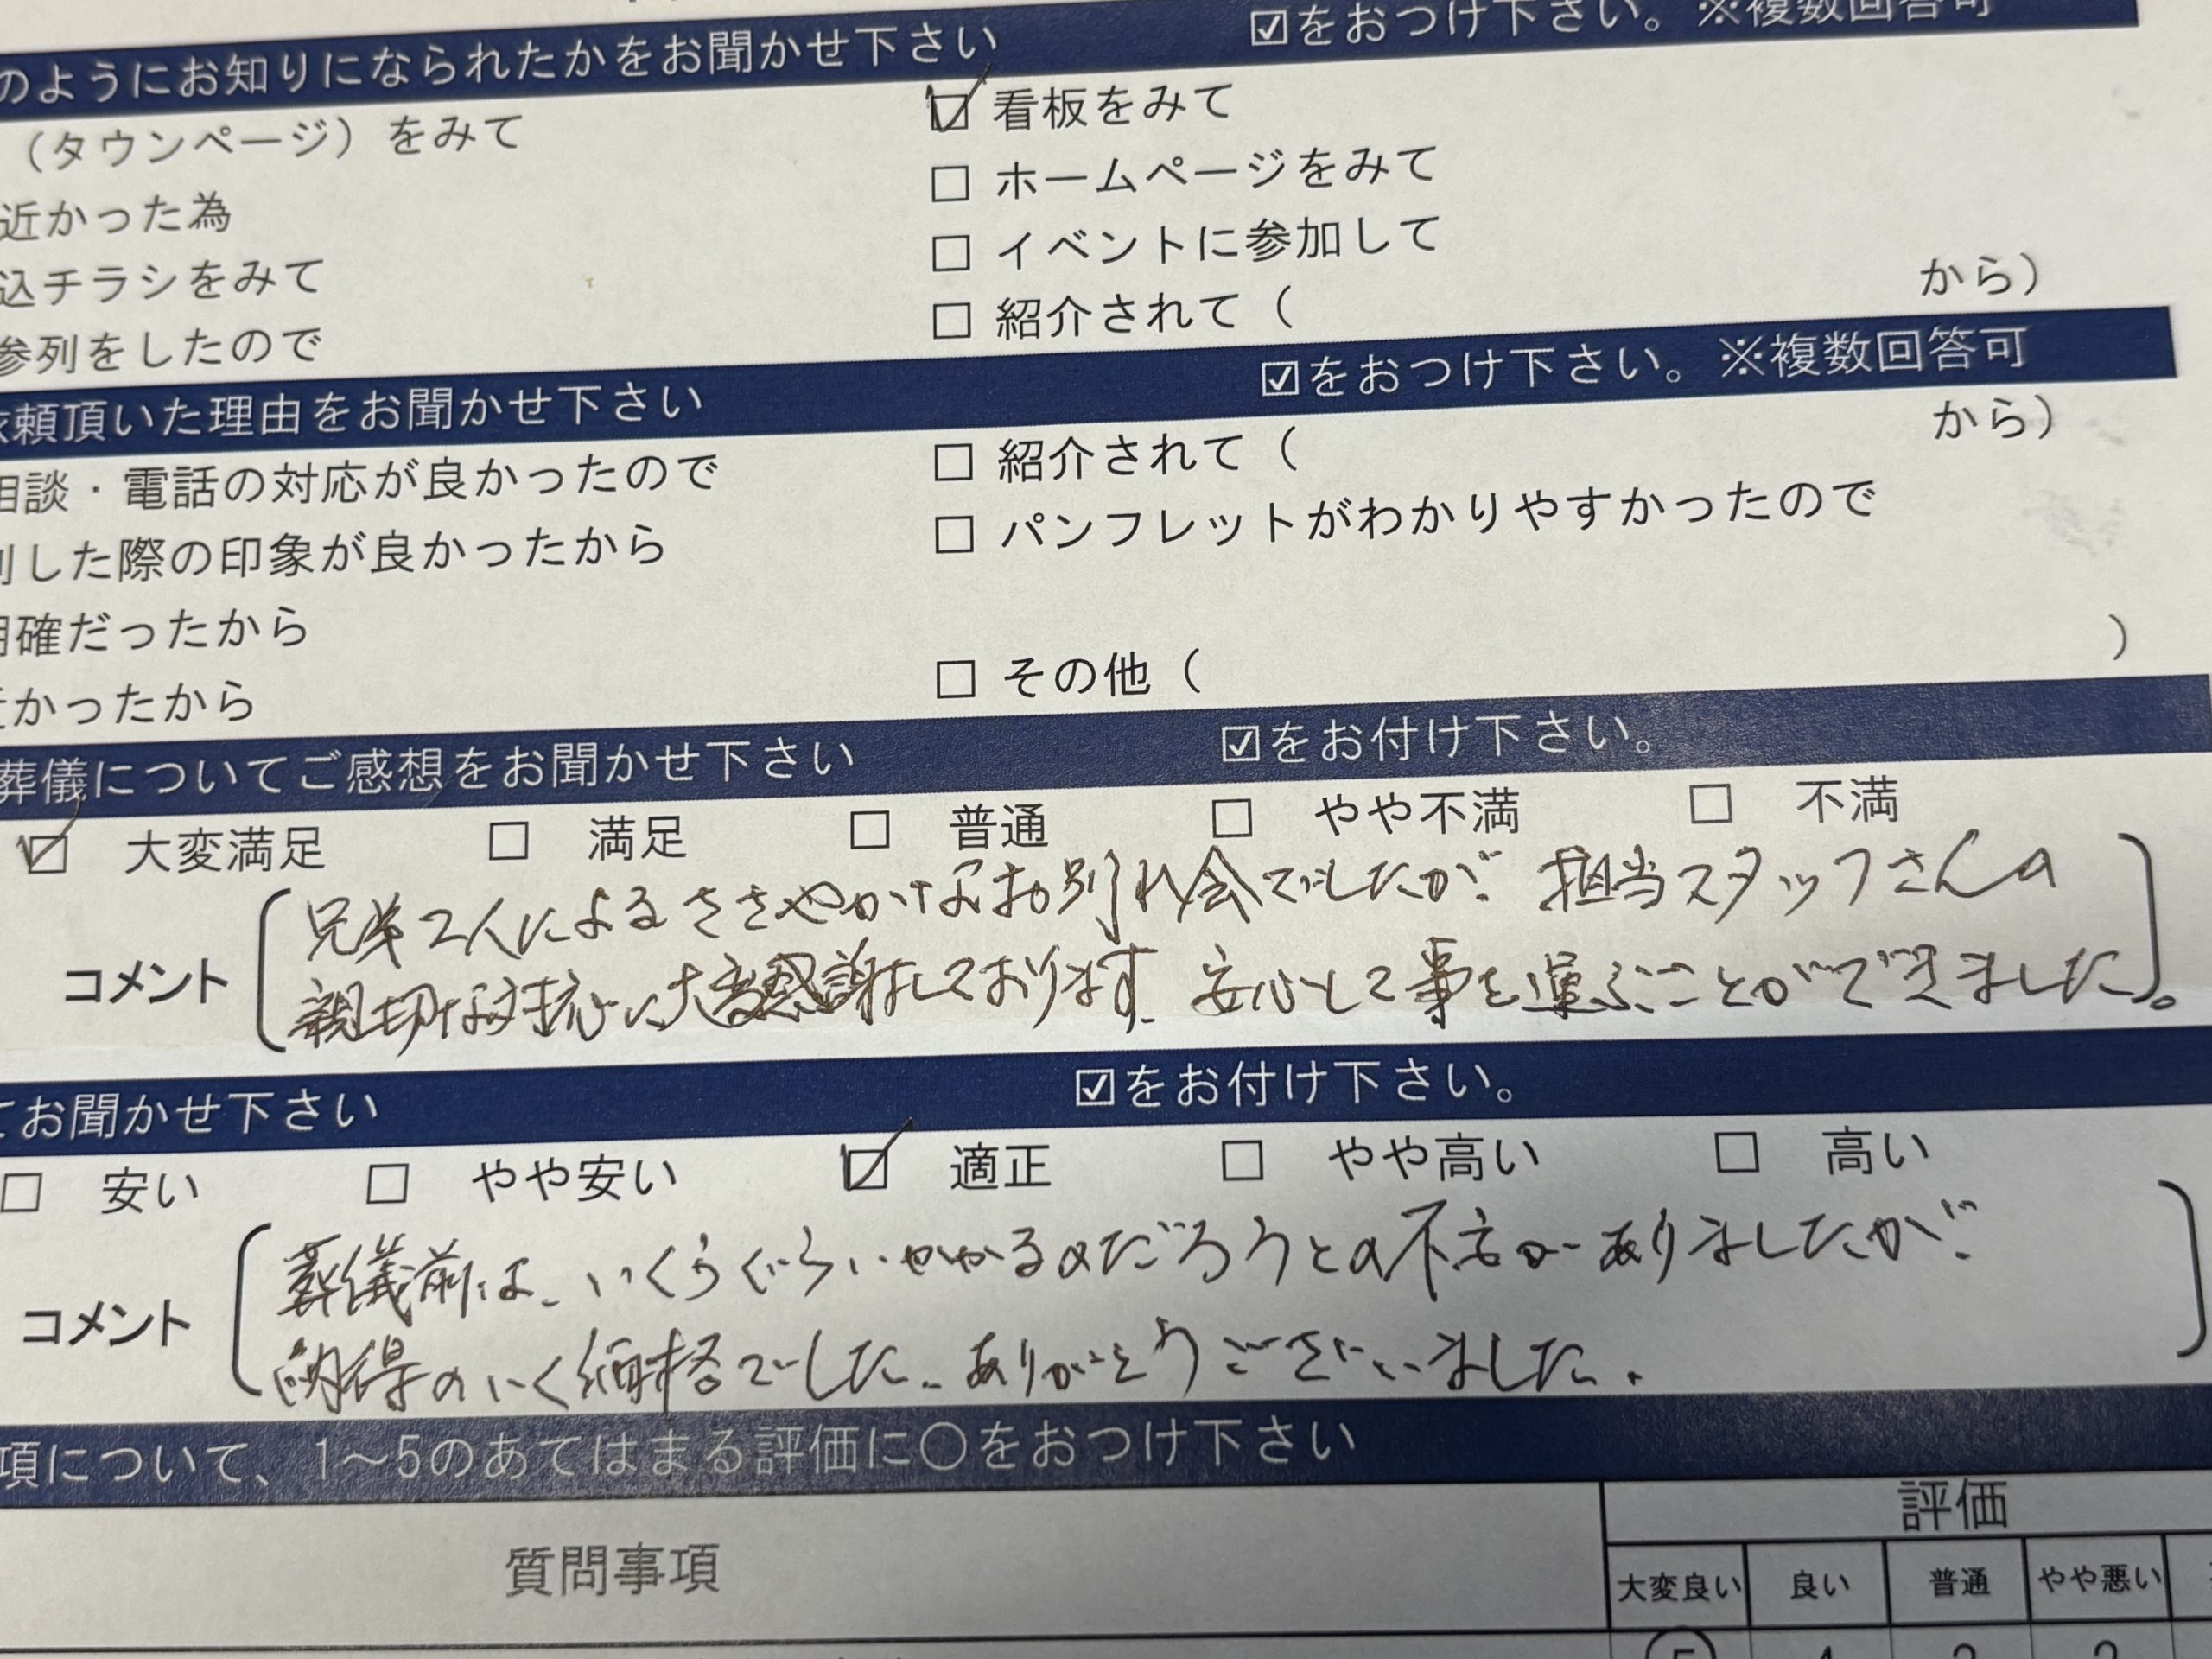 のようにお知りになられたかをお聞かせ下さい ☑をおつけ下さい。※複数回答可
（タウンページ）をみて ☑ 看板をみて
近かった為 □ ホームページをみて
込チラシをみて □ イベントに参加して
参列をしたので □ 紹介されて（ から）
依頼頂いた理由をお聞かせ下さい ☑をおつけ下さい。※複数回答可
相談・電話の対応が良かったので □ 紹介されて（ から）
列した際の印象が良かったから □ パンフレットがわかりやすかったので
明確だったから
近かったから □ その他（ ）
葬儀についてご感想をお聞かせ下さい ☑をお付け下さい。
☑ 大変満足 □ 満足 □ 普通 □ やや不満 □ 不満
コメント
兄弟2人によるささやかなお別れ会でしたが、担当スタッフさんの
親切な対応に大変感謝しております。安心して事を運ぶことができました。
てお聞かせ下さい ☑をお付け下さい。
□ 安い □ やや安い ☑ 適正 □ やや高い □ 高い
コメント
葬儀前は、いくらぐらいかかるのだろうとの不安がありましたが、
納得のいく価格でした。ありがとうございました。
項について、1～5のあてはまる評価に○をおつけ下さい
質問事項 評価
大変良い 良い 普通 やや悪い
5 4 3 2